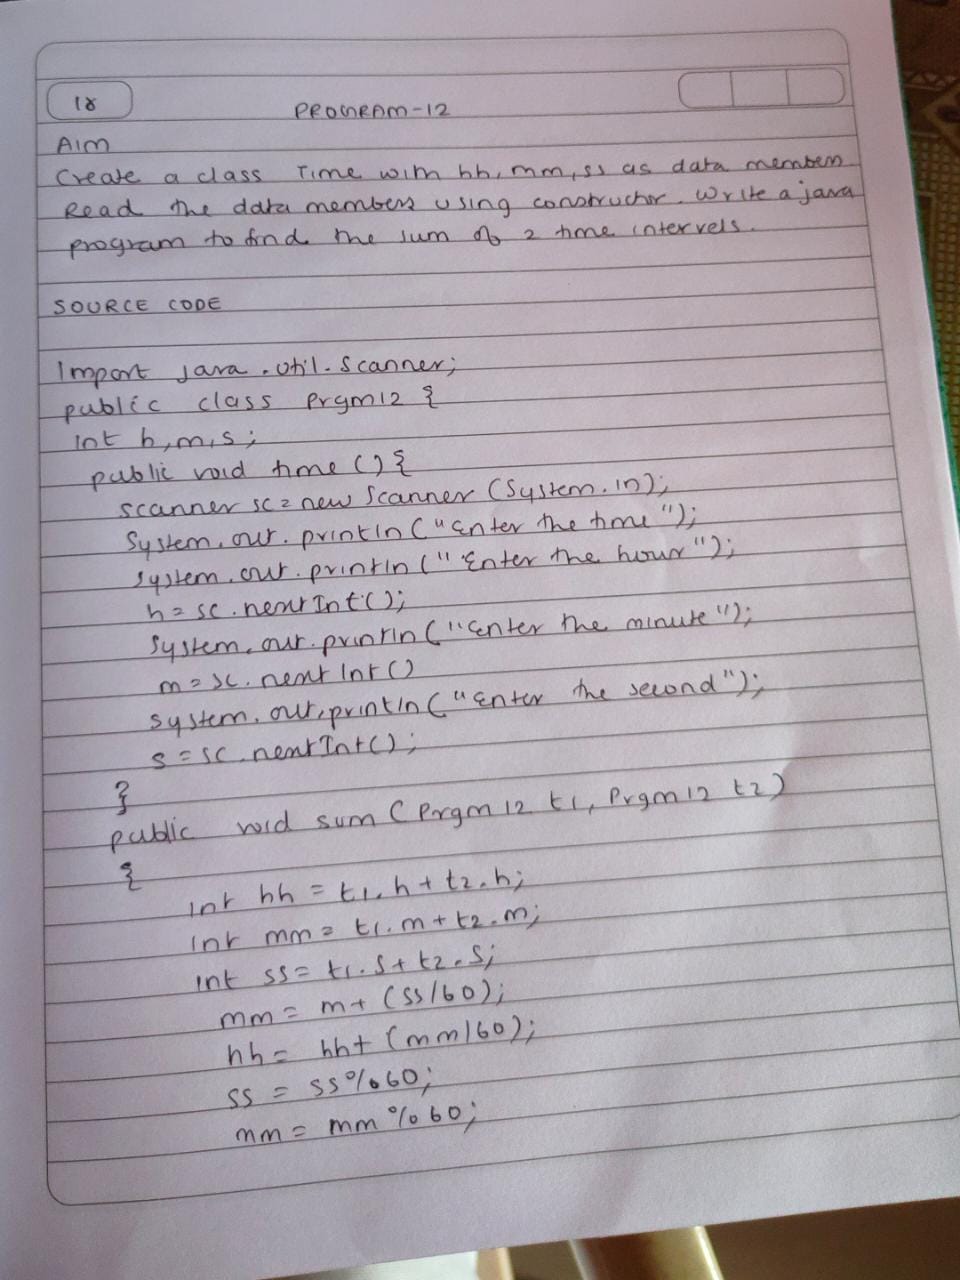 18
PROGRAM-12
AIM
Create a class Time with hh, mm, ss as data members
Read the data members using constructor. Write a java
program to find the sum of 2 time intervels.
SOURCE CODE
Import java.util.Scanner;
public class Prgm12 {
int h,m,s;
public void time () {
scanner sc = new Scanner (System.in);
System.out.println ("Enter the time");
System.out.println ("Enter the hour");
h = sc.nextInt();
System.out.println ("Enter the minute");
m = sc.nextInt()
System.out.println ("Enter the second");
s = sc.nextInt();
}
public void sum (Prgm12 t1, Prgm12 t2)
{
int hh = t1.h + t2.h;
int mm = t1.m + t2.m;
int ss = t1.s + t2.s;
mm = m + (ss/60);
hh = hh + (mm/60);
ss = ss%60;
mm = mm%60;